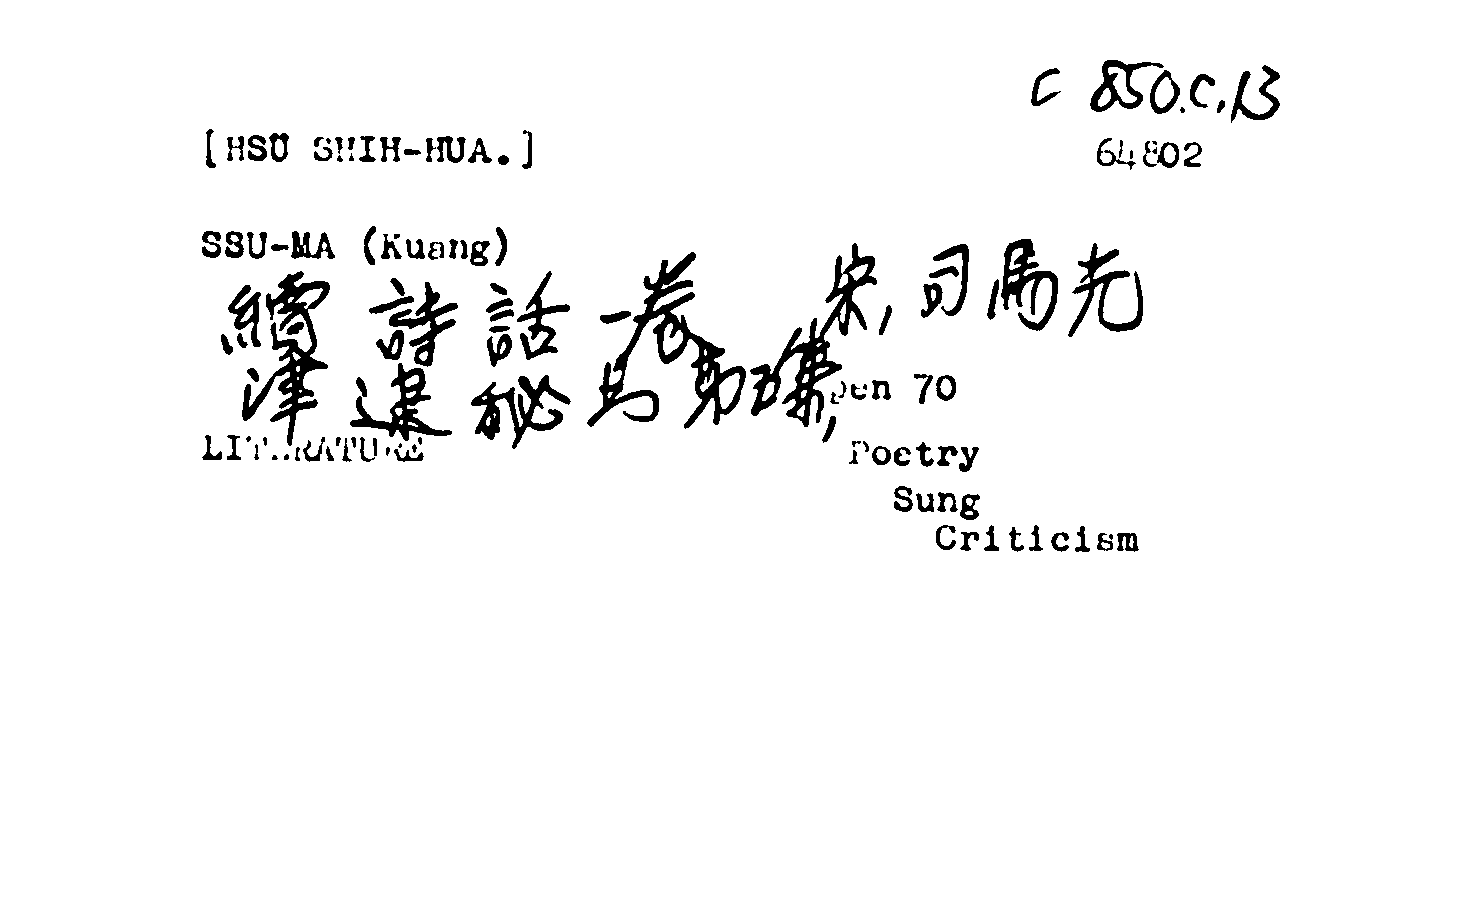 C 850.C.13
[HSÜ SHIH-HUA.]
64802
SSU-MA (Kuang)
續詩話一卷 宋,司馬光
津逮秘 第五集, pen 70
LITERATURE Poetry
Sung
Criticism